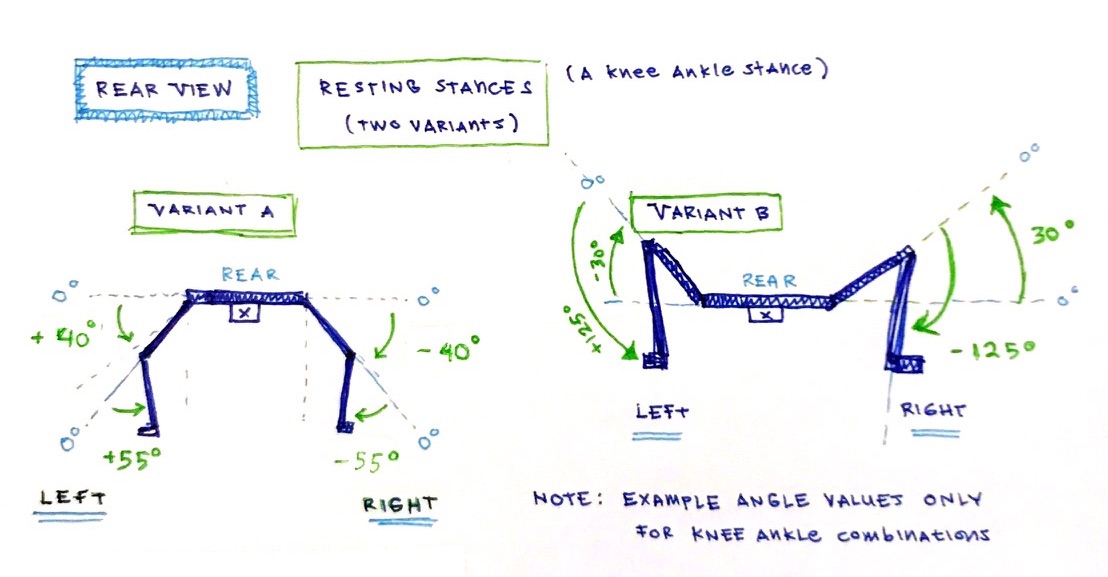 REAR VIEW
RESTING STANCES
(TWO VARIANTS)
(A knee Ankle stance)
VARIANT A
REAR
X
0°
0°
+ 40°
- 40°
0°
0°
+55°
-55°
LEFT
RIGHT
VARIANT B
0°
0°
-30°
+125°
REAR
X
30°
0°
-125°
LEFT
RIGHT
NOTE: EXAMPLE ANGLE VALUES ONLY
FOR KNEE ANkle combinAtions